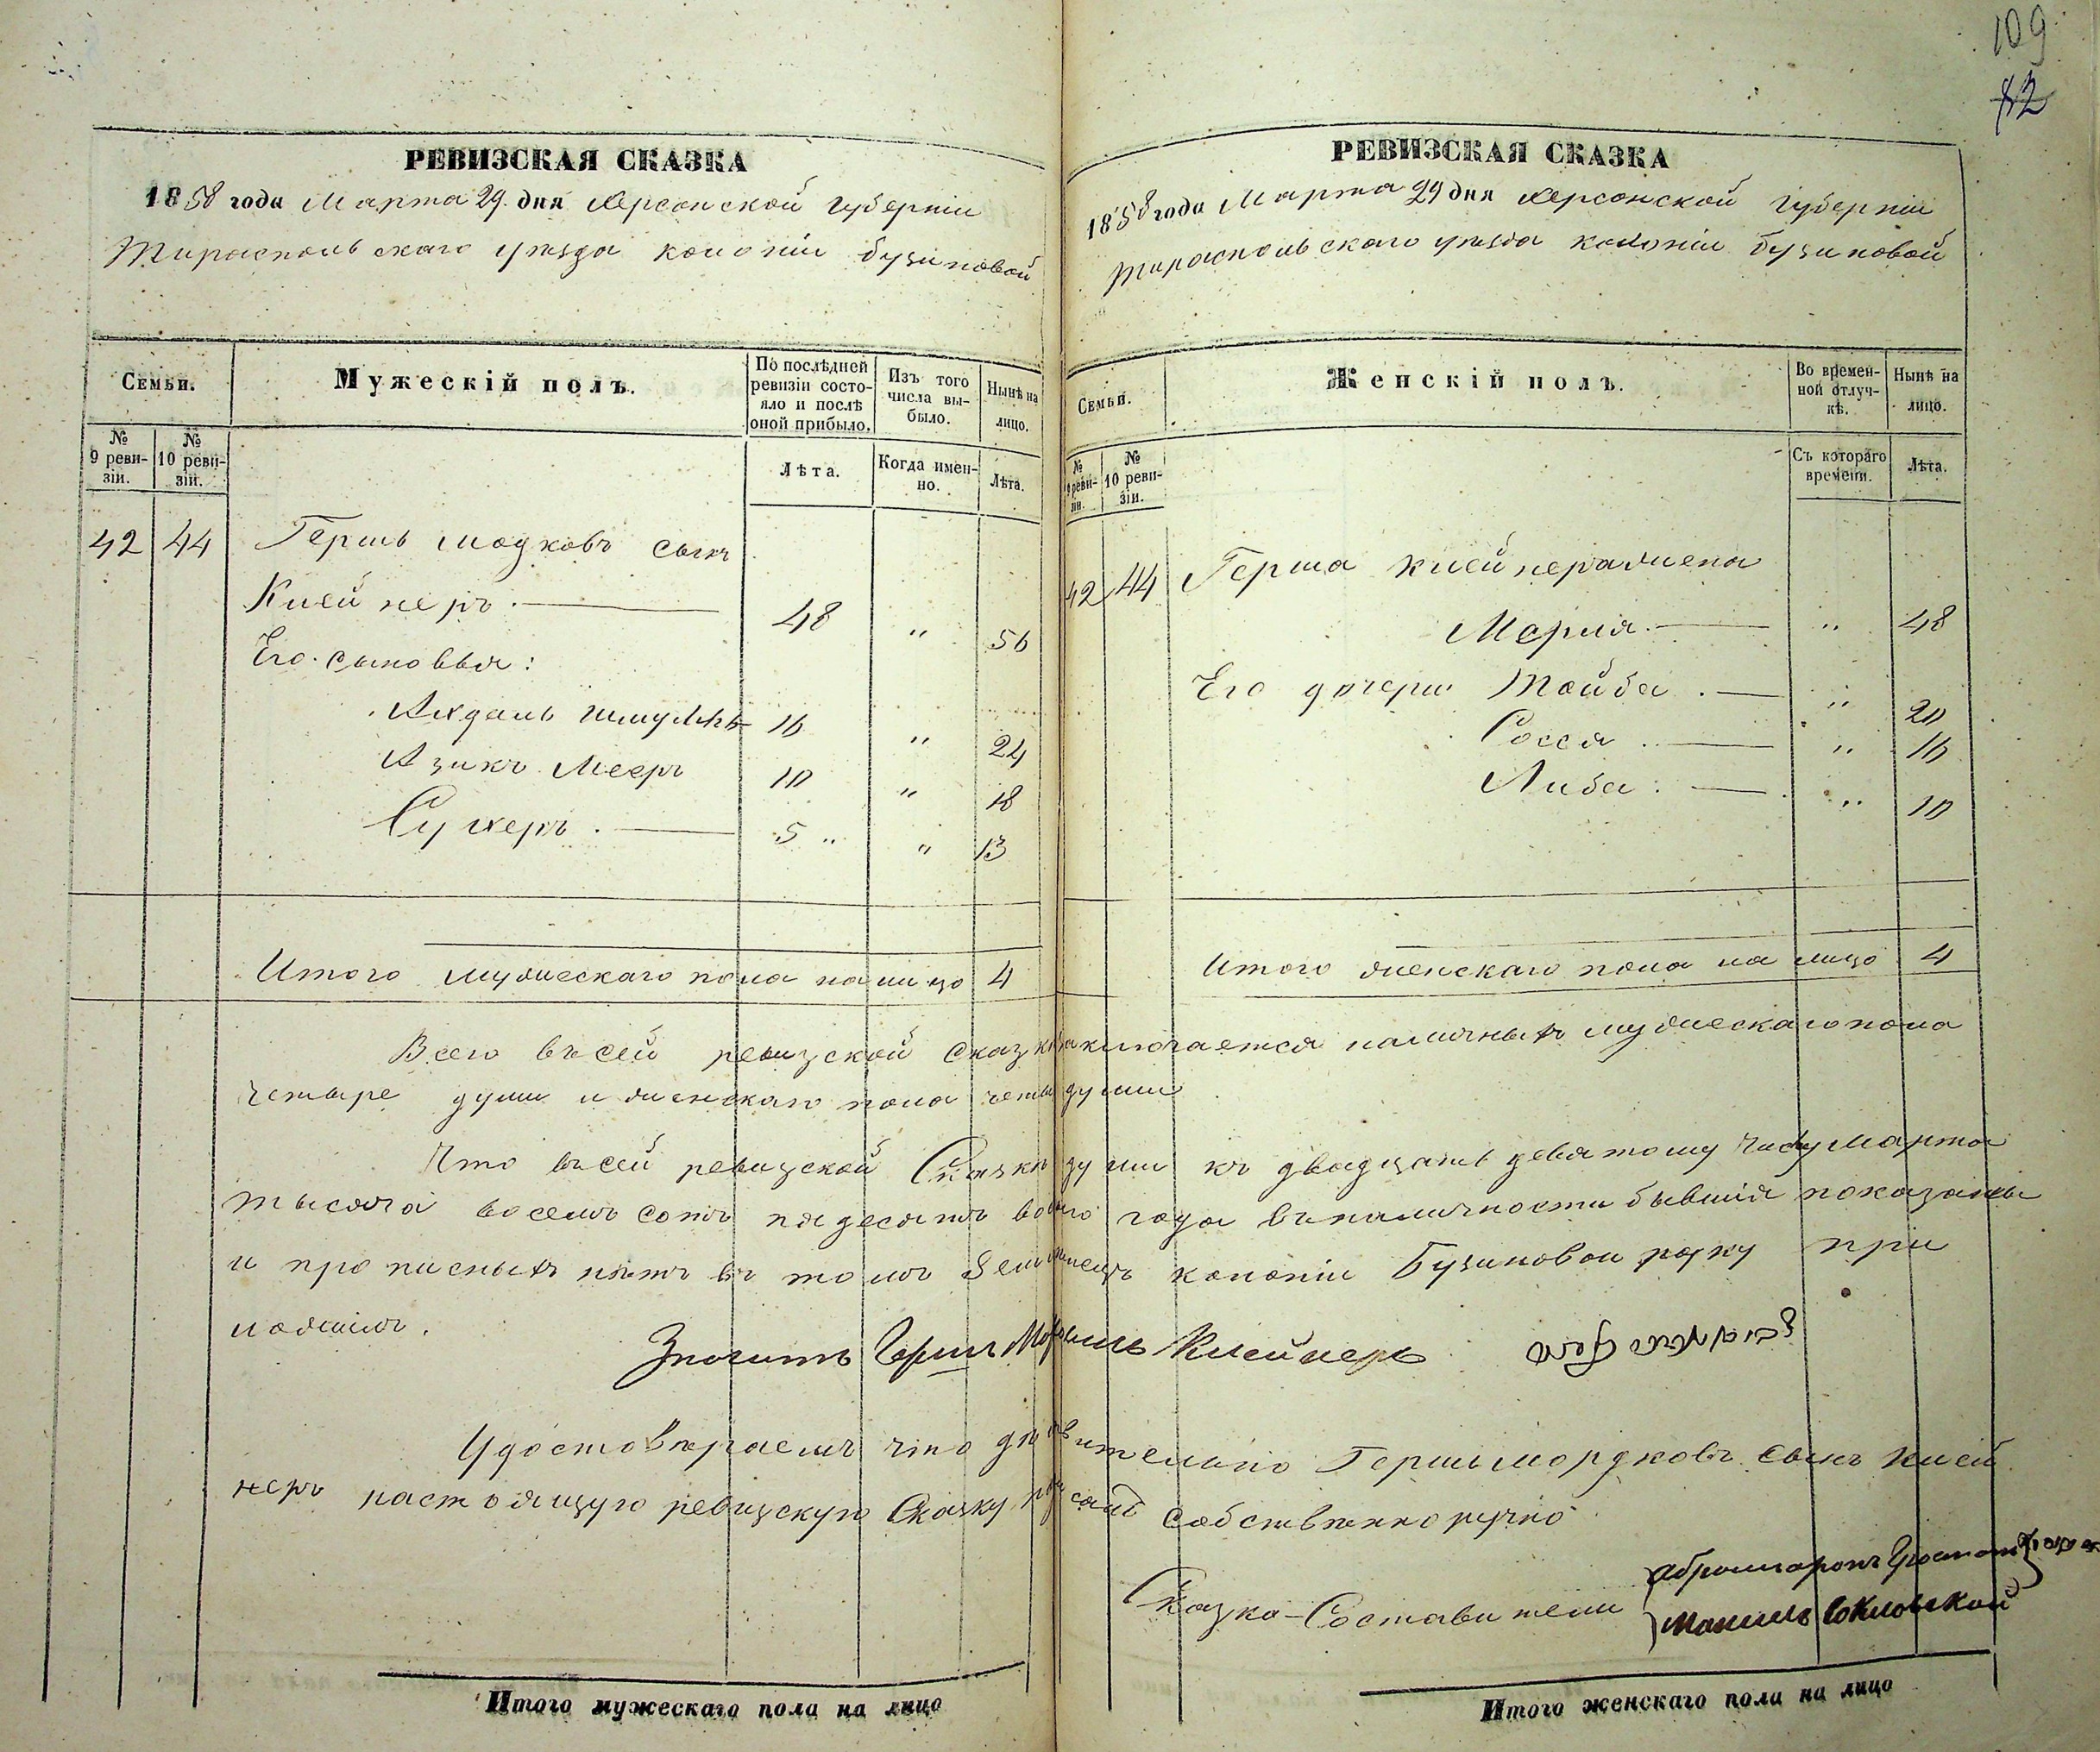 109
82
РЕВИЗСКАЯ СКАЗКА
1858 года Марта 29. дня Херсонской Губерніи
Тираспольскаго уѣзда колоніи бузиновой
Семьи.
Мужескій полъ.
По послѣдней ревизіи состояло и послѣ оной прибыло.
Изъ того числа выбыло.
Нынѣ на лицо.
№ 9 ревизіи.
№ 10 ревизіи.
Лѣта.
Когда именно.
Лѣта.
42 44 Гершъ Модковъ сынъ
Клейнеръ. 48 " 56
Его сыновья:
Айдаль Шмулъ 16 " 24
Азикъ Мееръ 10 " 18
Сухеръ. 5 " " 13
Итого мужескаго пола налицо 4
РЕВИЗСКАЯ СКАЗКА
1858 года Марта 29 дня Херсонской Губерніи
Тираспольскаго уѣзда колоніи бузиновой
Семьи.
Женскій полъ.
Во временной отлучкѣ.
Нынѣ на лицо.
№ 9 ревизіи.
№ 10 ревизіи.
Съ котораго времени.
Лѣта.
42 44 Герша Клейнера жена
Мерия. " 48
Его дочери Тойба. " 20
Сосся. " 16
Либа. " 10
Итого женскаго пола на лицо 4
Всего въ сей ревизской сказкѣ заключается наличныхъ мужескаго пола
четыре души и женскаго пола четыре души
Что въ сей ревизской Сказкѣ души къ двадцать девятому числу Марта
тысяча восемъ сотъ пядесятъ восмаго года въ наличности бывшія показаны
и прописныхъ нѣтъ въ томъ колоніи Бузиновой руку при
ложилъ.
Значитъ Гершъ Клейнеръ
Удостовѣраемъ что дѣйствительно Гершъ Мордковъ сынъ Клей
неръ настоящую ревизскую Сказку собственноручно
Сказко-Составители
Итого мужескаго пола на лицо
Итого женскаго пола на лицо